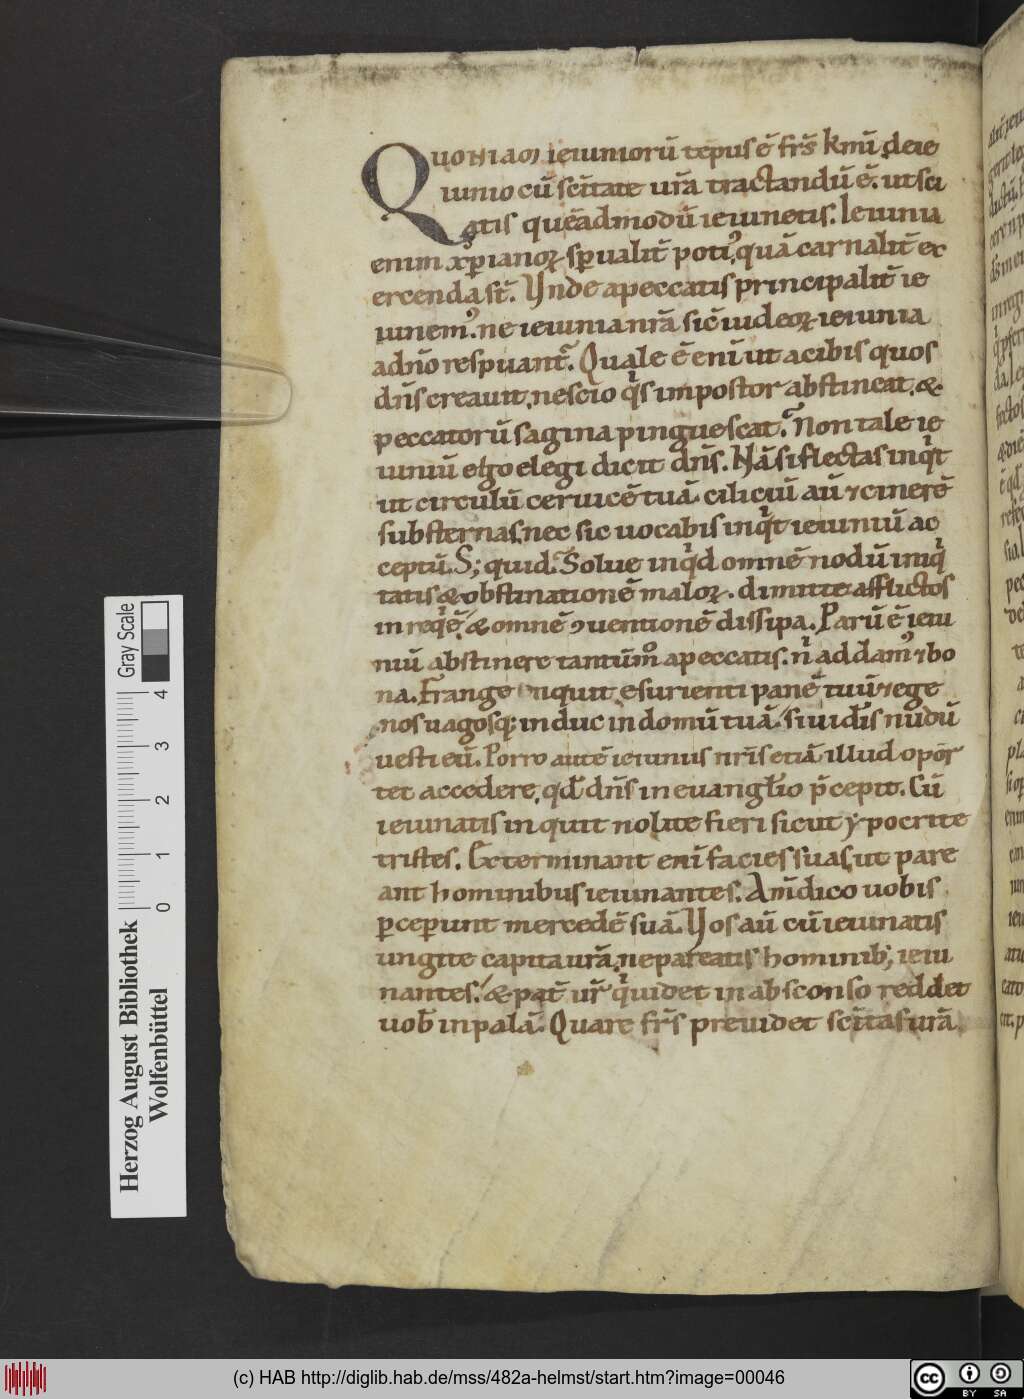 Quoniam ieiuniorū tēpus ē fr̄s km̄i, de ie
iunio cū sc̄itate ur̄a tractandū ē. ut sci
atis quēadmodū ieiunetis. Ieiunia
enim xp̄ianoꝝ sp̄ualit̄ poti᾽ quā carnalit̄ ex
ercenda st̄. Vnde a peccatis principalit̄ ie
iunem᾽. ne ieiunia nr̄a sic̄ iudeoꝝ ieiunia
a dn̄o respuant᷑. Quale ē enī ut a cibis quos
dn̄s creauit, nescio qͥs impostor abstineat, &
peccatorū sagina pinguescat? Non tale ie
iuniū ego elegi dicit dn̄s. Nā si flectas inqͥt
ut circulū ceruicē tuā. ciliciū aū ⁊ cinerē
substernas, nec sic uocabis inqͥt ieiuniū ac
ceptū. S; quid? Solue inqͥd omnē nodū iniqͥ
tatis & obstinationē maloꝝ. dimitte afflictos
in reqͥē, & omnē ꝯuentionē dissipa. Parū ē ieiu
niū abstinere tantūm̊ a peccatis. nͥ addam᾽ ⁊ bo
na. Frange inquit esurienti panē tuū ⁊ ege
nos uagosq; induc in domū tuā. si uid̄is nudū
uesti eū. Porro autē ieiunus nr̄is etiā illud opor
tet accedere, qd̄ dn̄s in euangl̄io p̄cepit. Cū
ieiunatis inquit nolite fieri sicut ypocrite
tristes. Exterminant enī facies suas, ut pare
ant hominibus ieiunantes. Am̄ dico uobis
ꝑceꝑunt mercedē suā. Vos aū cū ieiunatis
ungite capita ur̄a, ne pareatis hominib; ieiu
nantes. & pat̄ ur̄ qͥ uidet in absconso reddet
uob̄ in palā. Quare fr̄s preuidet sc̄itas ur̄a
Herzog August Bibliothek
Wolfenbüttel
Gray Scale
0 1 2 3 4
(c) HAB http://diglib.hab.de/mss/482a-helmst/start.htm?image=00046
cc BY SA